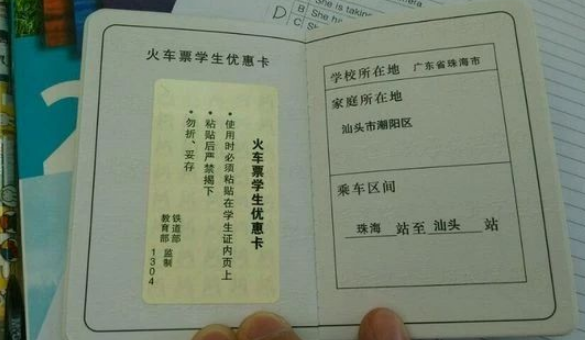 D
B She is taking
C She ha
火车票学生优惠卡
火车票学生优惠卡
• 使用时必须粘贴在学生证内页上
• 粘贴后严禁揭下
• 勿折、妥存
铁道部
教育部 监制
1304
学校所在地 广东省珠海市
家庭所在地
汕头市潮阳区
乘车区间
珠海 站至 汕头 站
2